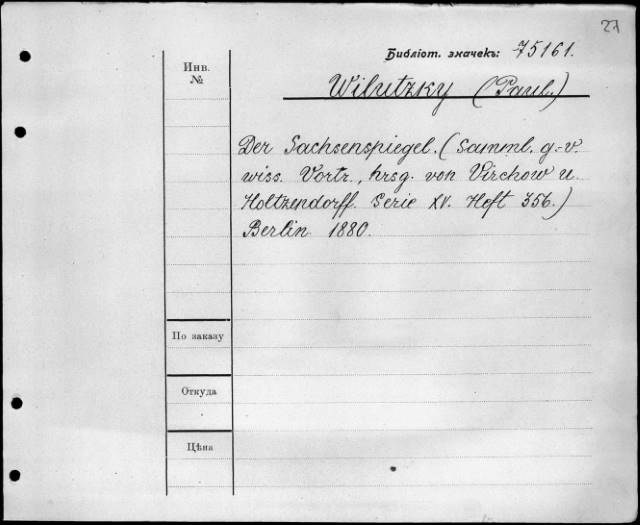 27
Библіот. значекъ: 75161.
Инв.
№
Wilutzky (Paul)
Der Sachsenspiegel. (Samml. g.-v.
wiss. Vortr., hrsg. von Virchow u.
Holtzendorff. Serie XV. Heft 356.)
Berlin 1880.
По заказу
Откуда
Цѣна